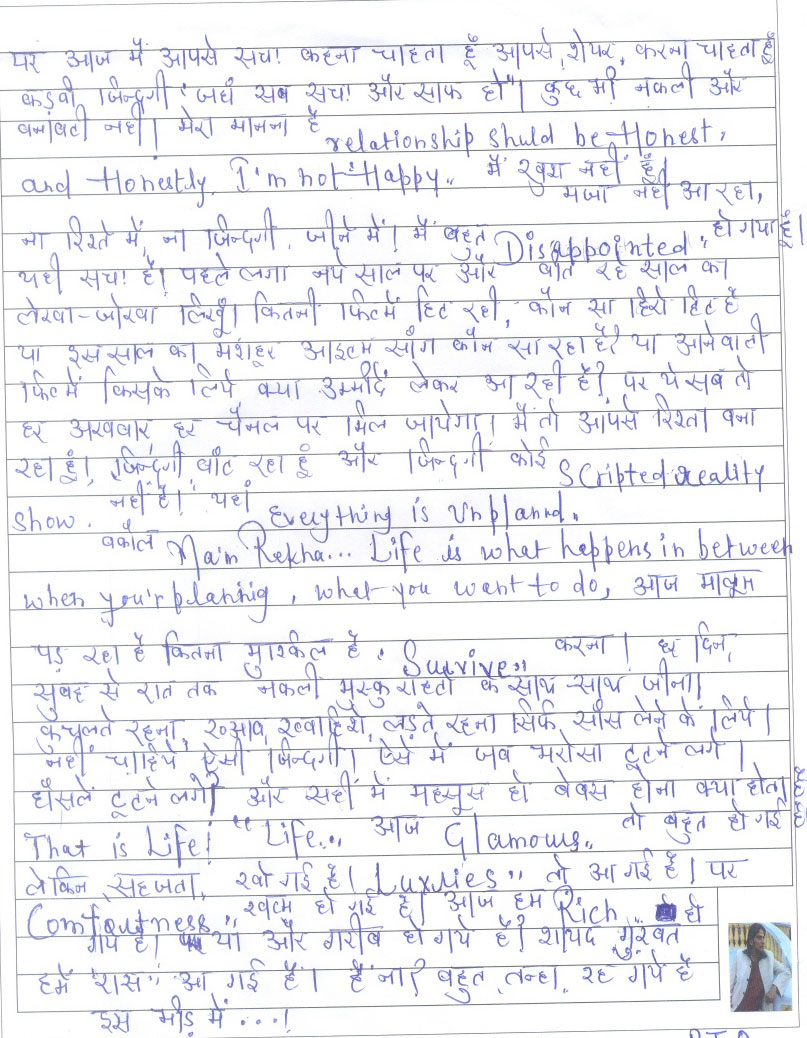 पर आज मैं आपसे सच! कहना चाहता हूँ आपसे, शेयर, करना चाहता हूँ
कड़वी, जिन्दगी! जहाँ सब सच! और साफ हो"। कुछ भी नकली और
बनावटी नहीं। मेरा मानना है relationship shuld be Honest,
and Honestly. I'm not Happy.. मैं खुश नहीं हूँ।
मजा नहीं आ रहा,
ना रिश्ते में, ना जिन्दगी, जीने में। मैं बहुत Disappointed, हो गया हूँ।
यही सच! है। पहले लगा नये साल पर और बीत रहे साल का
लेखा-जोखा लिखूँ। कितनी फिल्में हिट रही, कौन सा हिरो हिट है
या इस साल का मशहूर आइटम सॉंग कौन सा रहा है? या आनेवाली
फिल्में किसके लिये क्या उम्मीदें लेकर आ रही हैं? पर ये सब तो
हर अखबार हर चैनल पर मिल जायेगा। मैं तो आपसे रिश्ता बना
रहा हूं। जिन्दगी बाँट रहा हूं और जिन्दगी कोई Scripted reality
show. नहीं है। यहां Everything is Unplannd.
बकौल Ma'm Rekha... Life is what happens in between
when your'r planning, what you want to do, आज मालूम
पड़ रहा है कितना मुश्किल है, Survive,, करना। हर दिन,
सुबह से रात तक नकली मुस्कुराहटों के साथ-साथ जीना।
कुचलते रहना, ख्आब, ख्वाहिशें, लड़ते रहना सिर्फ साँस लेने के लिये।
नहीं चाहिये ऐसी जिन्दगी। ऐसे में जब भरोसा टूटने लगे।
हौसलें टूटने लगे। और सही में महसूस हो बेबस होना क्या होता है
That is Life! " Life.,, आज Glamours,, तो बहुत हो गई है
लेकिन सहजता, खो गई है। Luxries,, तो आ गई है। पर
Comfoutness,, खत्म हो गई है। आज हम Rich.. हो
गये है। या और गरीब हो गये हैं? शायद गुरबत
हमें "रास" आ गई है। हैं ना? बहुत तन्हा, रह गये है
इस भीड़ में...!
P.T.O